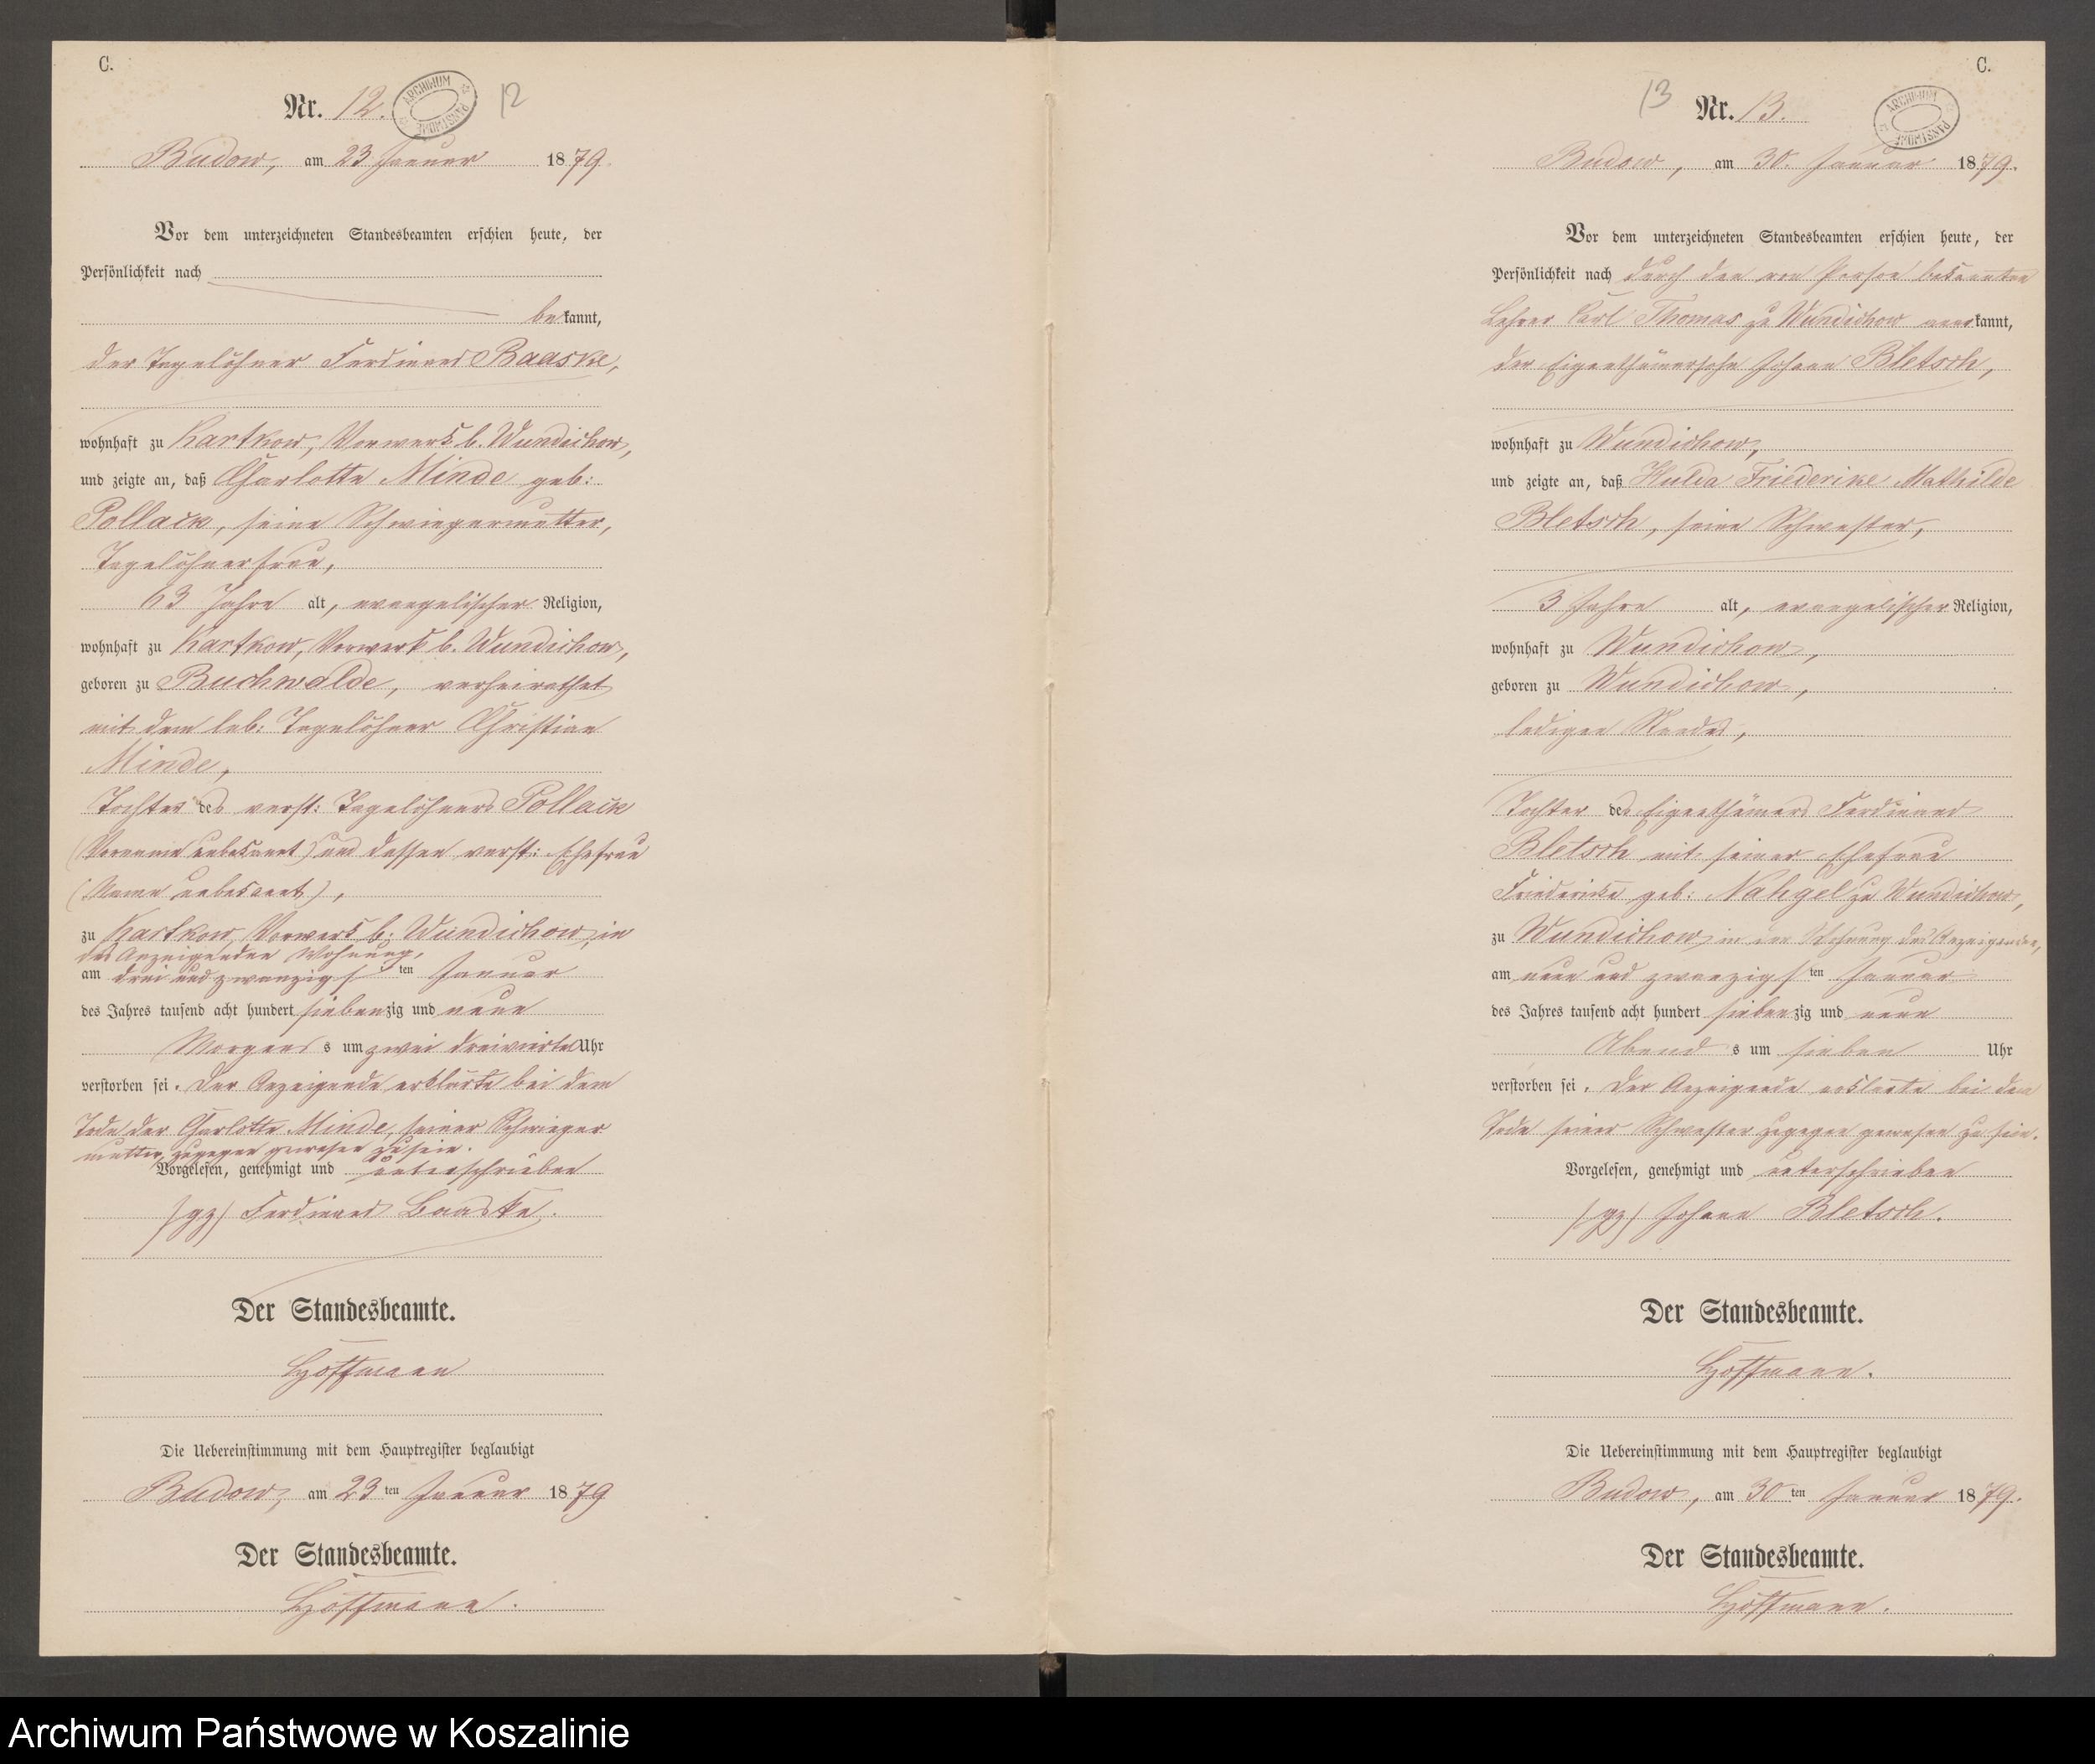 C.
Nr. 12.
12
ARCHIWUM PAŃSTWOWE
Budow, am 23 Januar 1879.
Vor dem unterzeichneten Standesbeamten erschien heute, der
Persönlichkeit nach
bekannt,
der Tagelöhner Ferdinand Baaske,
wohnhaft zu Kartkow, Vorwerk b. Wundichow,
und zeigte an, daß Charlotte Minde geb:
Pollack, seine Schwiegermutter,
Tagelöhnerfrau,
63 Jahre alt, evangelischer Religion,
wohnhaft zu Kartkow, Vorwerk b. Wundichow,
geboren zu Buchwalde, verheirathet
mit dem leb: Tagelöhner Christian
Minde,
Tochter des verst: Tagelöhners Pollack
(Vorname unbekannt) und dessen verst: Ehefrau
(Name unbekannt),
zu Kartkow, Vorwerk b. Wundichow, in
des Anzeigenden Wohnung,
am drei und zwanzigsten Januar
des Jahres tausend acht hundert siebenzig und neun
Morgens um zwei dreiviertel Uhr
verstorben sei. Der Anzeigende erklärte bei dem
Tode der Charlotte Minde, seiner Schwieger
mutter, zugegen gewesen zu sein.
Vorgelesen, genehmigt und unterschrieben
(gz) Ferdinand Baaske.
Der Standesbeamte.
Hoffmann
Die Uebereinstimmung mit dem Hauptregister beglaubigt
Budow, am 23ten Januar 1879
Der Standesbeamte.
Hoffmann.
C.
13
Nr. 13.
ARCHIWUM PAŃSTWOWE
Budow, am 30. Januar 1879.
Vor dem unterzeichneten Standesbeamten erschien heute, der
Persönlichkeit nach durch den von Person bekannten
Lehrer Carl Thomas zu Wundichow anerkannt,
der Eigenthümersohn Johann Bletsch,
wohnhaft zu Wundichow,
und zeigte an, daß Hulda Friederike Mathilde
Bletsch, seine Schwester,
3 Jahre alt, evangelischer Religion,
wohnhaft zu Wundichow,
geboren zu Wundichow,
ledigen Standes,
Tochter des Eigenthümers Ferdinand
Bletsch mit seiner Ehefrau
Friederike geb: Nahgel zu Wundichow,
zu Wundichow in der Wohnung des Anzeigenden,
am neun und zwanzigsten Januar
des Jahres tausend acht hundert siebenzig und neun
Abends um sieben Uhr
verstorben sei. Der Anzeigende erklärte bei dem
Tode seiner Schwester zugegen gewesen zu sein.
Vorgelesen, genehmigt und unterschrieben
(gz) Johann Bletsch.
Der Standesbeamte.
Hoffmann.
Die Uebereinstimmung mit dem Hauptregister beglaubigt
Budow, am 30ten Januar 1879.
Der Standesbeamte.
Hoffmann.
Archiwum Państwowe w Koszalinie